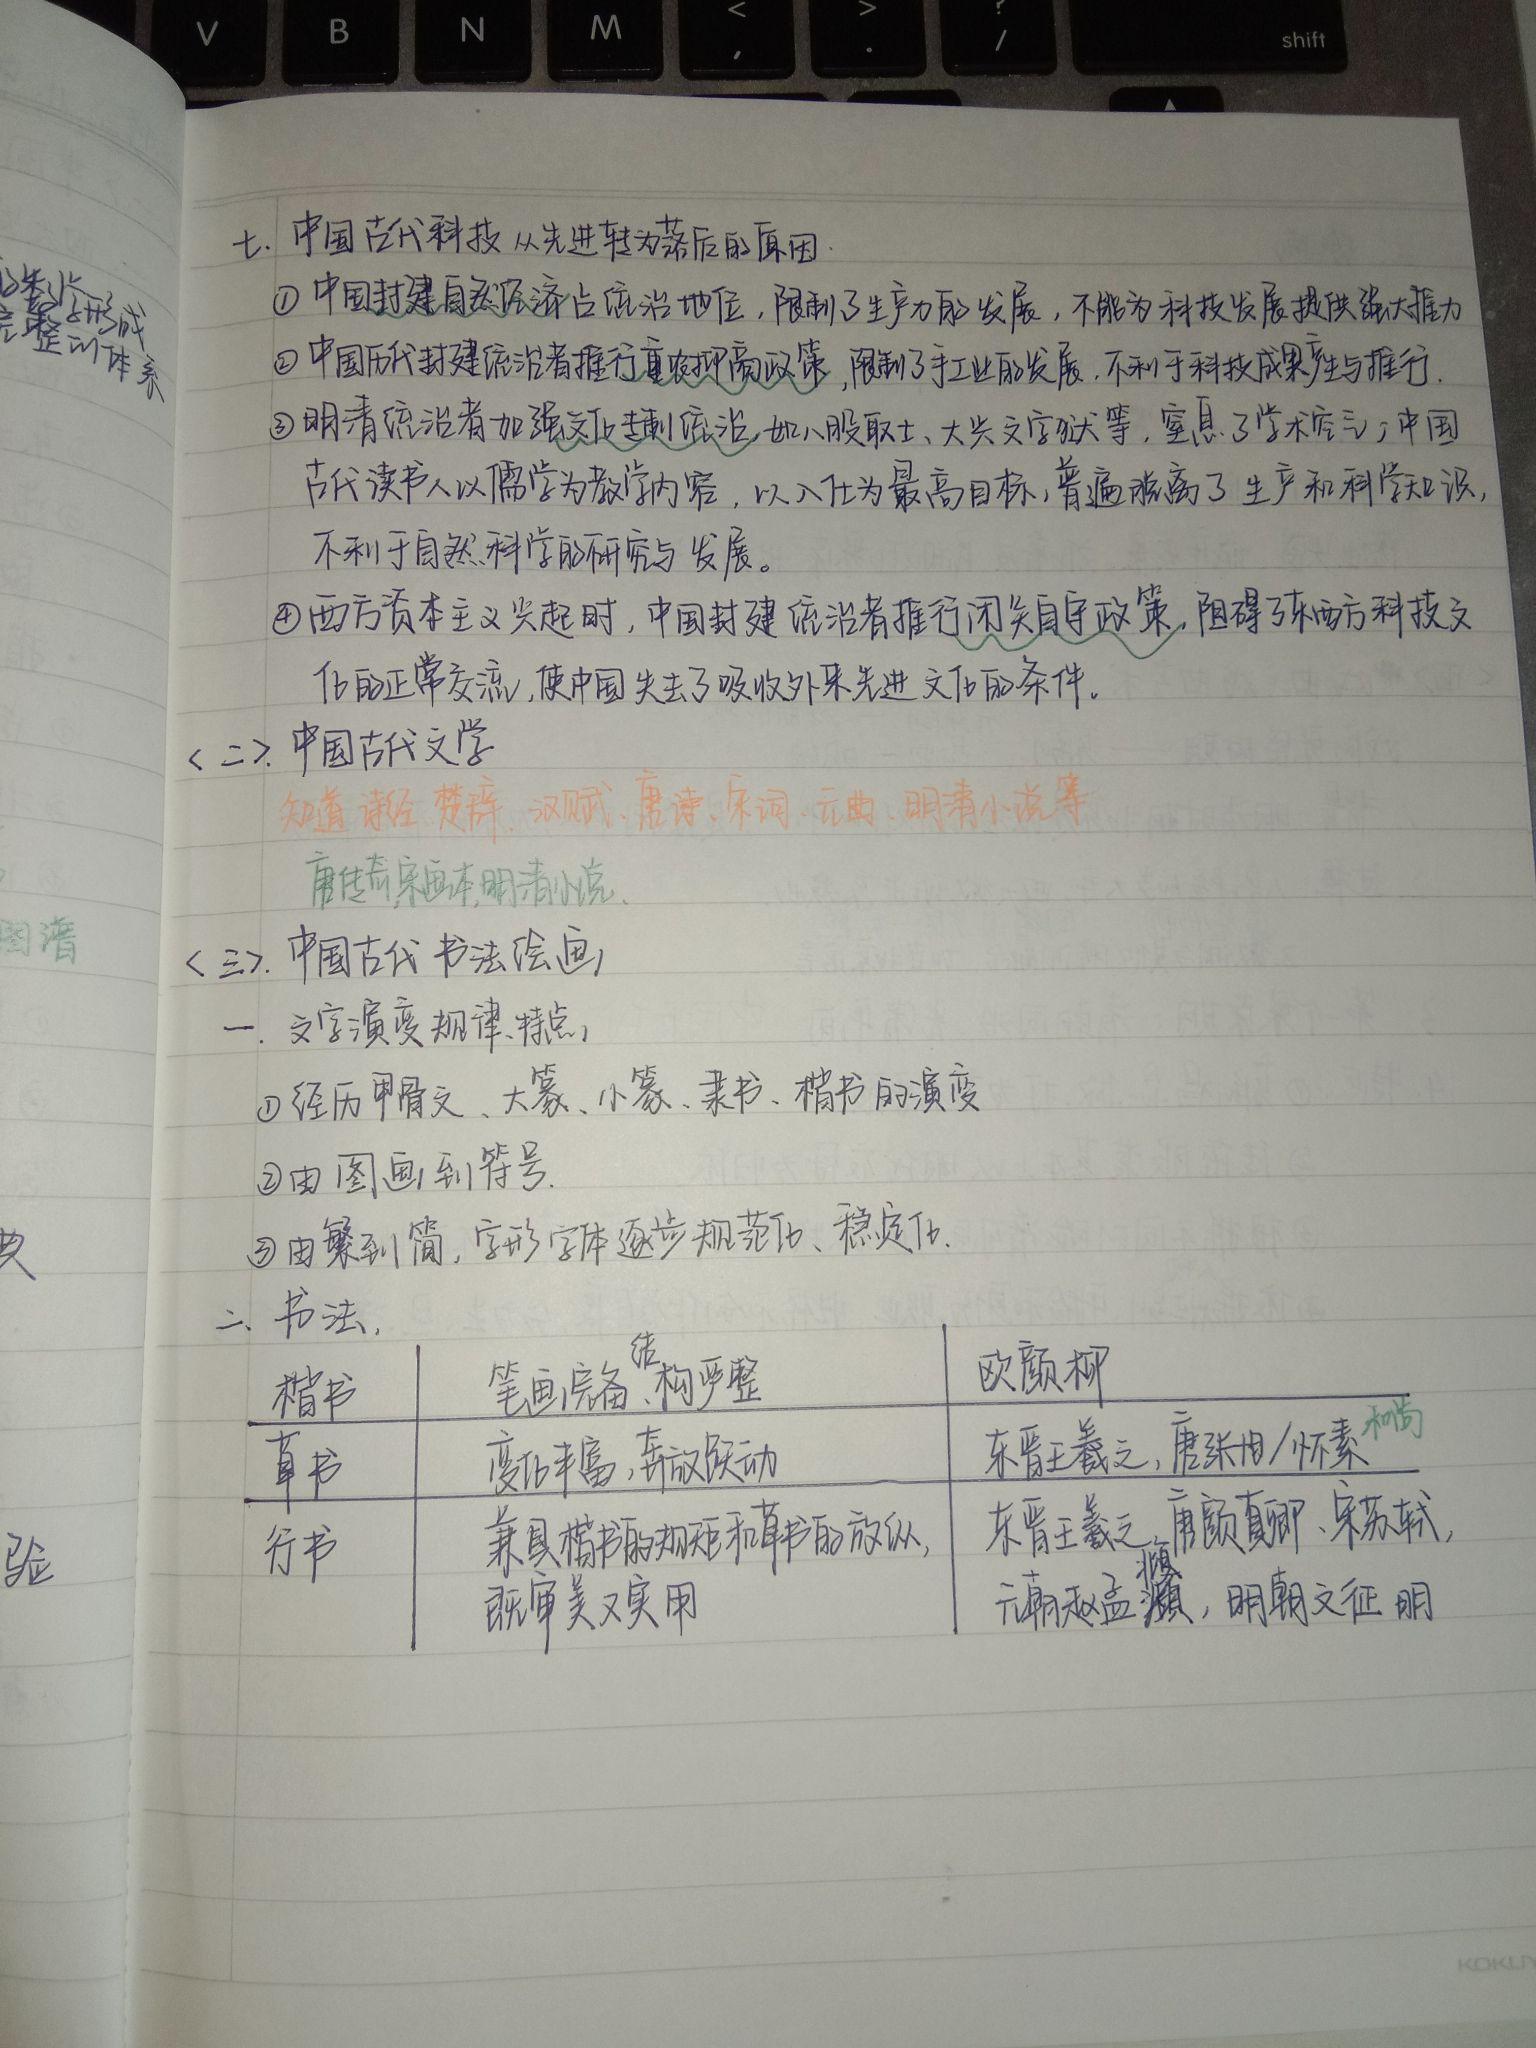 V B N M < , > . ? / shift
七. 中国古代科技从先进转为落后的原因.
①中国封建自然经济占统治地位，限制了生产力的发展，不能为科技发展提供强大推力
②中国历代封建统治者推行重农抑商政策，限制了手工业的发展，不利于科技成果产生与推行.
③明清统治者加强文化专制统治，如八股取士、大兴文字狱等，窒息了学术空气；中国
古代读书人以儒学为教学内容，以入仕为最高目标，普遍脱离了生产和科学知识，
不利于自然科学的研究与发展。
④西方资本主义兴起时，中国封建统治者推行闭关自守政策，阻碍了东西方科技文
化的正常交流，使中国失去了吸收外来先进文化的条件。
<二>. 中国古代文学
知道诗经、楚辞、汉赋、唐诗、宋词、元曲、明清小说等
唐传奇，宋画本，明清小说.
<三>. 中国古代书法绘画
一. 文字演变规律、特点
①经历甲骨文、大篆、小篆、隶书、楷书的演变
②由图画到符号.
③由繁到简，字形字体逐步规范化、稳定化.
二、书法.
楷书 笔画完备、结构严整 欧颜柳
草书 变化丰富，奔放跃动 东晋王羲之，唐张旭/怀素 和尚
行书 兼具楷书的规矩和草书的放纵， 东晋王羲之、唐颜真卿、宋苏轼，
既审美又实用 元朝赵孟頫，明朝文征明
整的体系
图谱
典
验
KOKUY